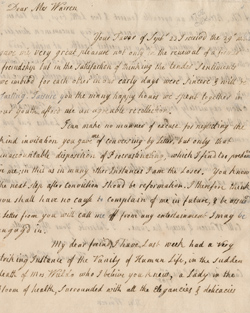 Dear Mrs Warren
Your Favor of Sepbr 22 I received the 29th and
gave me very great pleasure not only in the renewal of a
friendship but in the Satisfaction of thinking the tender Sentiments
we imbibd for each other in our early days were Sincere &
lasting. I assure you the many happy hours we spent together in
our Youth afford me an agreable recollection.
I can make no manner of excuse for neglecting the
kind invitation you gave me of answering by letter, but only that
unaccountable disposition of procrastinating, which I find so
me, in this as in many other Instances I am the loser. You know
the next step after conviction Should be reformation. I therefore think
you shall have no cause to complain of me in future, & be assured a
letter from you will call me off from any entertainment I may be
engag'd in.
My dear friend, I have Last week had a very
striking Instance of the Vanity of Human Life, in the sudden
death of Mrs Waldo who I believe you knew, a Lady in the
bloom of health, Surrounded with all the Elegancies & delicacies